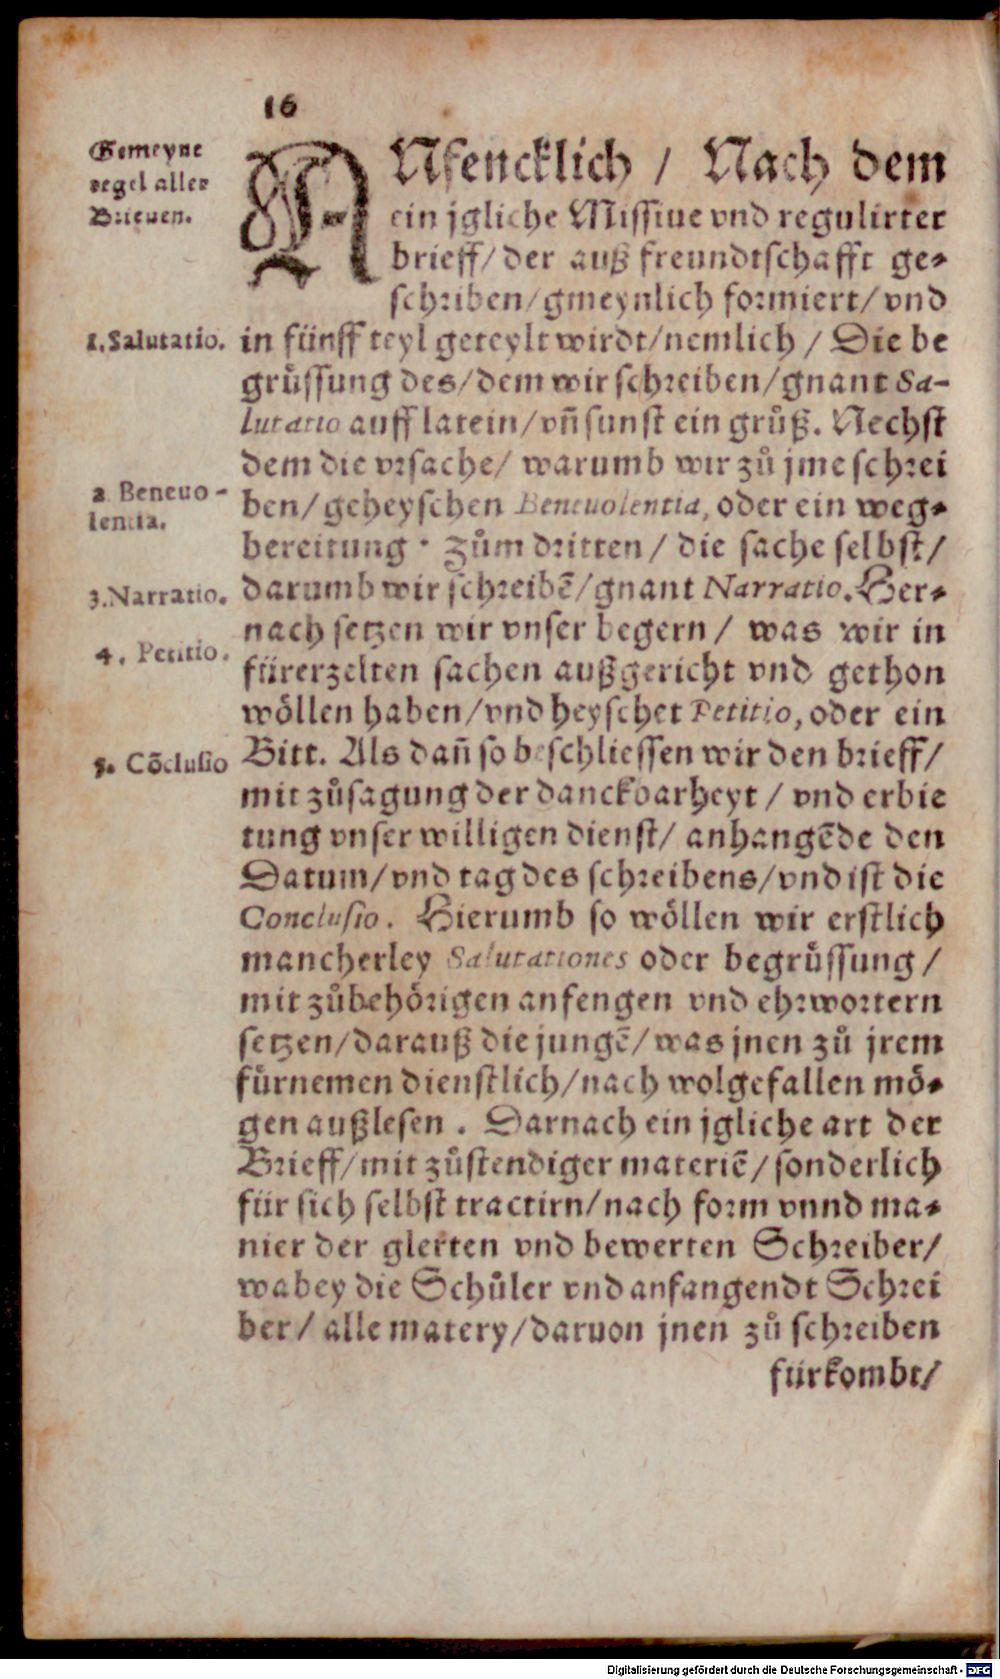 16
Gemeyne
regel aller
Brieuen.
ANfencklich / Nach dem
ein jgliche Missiue vnd regulirter
brieff/ der auß freundtschafft ge⸗
schriben/gmeynlich formiert/ vnd
1. Salutatio.
in fünff teyl geteylt wirdt/nemlich / Die be
grůssung des/dem wir schreiben/gnant Sa-
lutatio auff latein/vn̄ sunst ein grůß. Nechst
dem die vrsache/ warumb wir zů jme schrei
2. Beneuo-
lentia.
ben/ geheyschen Beneuolentia, oder ein weg⸗
bereitung. Zům dritten / die sache selbst/
3. Narratio.
darumb wir schreibē/gnant Narratio. Her⸗
nach setzen wir vnser begern / was wir in
4. Petitio.
fürerzelten sachen außgericht vnd gethon
wöllen haben/vnd heyschet Petitio, oder ein
5. Cōclusio
Bitt. Als dan̄ so beschliessen wir den brieff/
mit zůsagung der danckbarheyt / vnd erbie
tung vnser willigen dienst/ anhangēde den
Datum/vnd tag des schreibens/vnd ist die
Conclusio. Hierumb so wöllen wir erstlich
mancherley Salutationes oder begrůssung /
mit zůbehörigen anfengen vnd ehrwortern
setzen/darauß die jungē/was jnen zů jrem
fürnemen dienstlich/nach wolgefallen mö⸗
gen außlesen. Darnach ein jgliche art der
Brieff/mit zůstendiger materiē/sonderlich
für sich selbst tractirn/nach form vnnd ma⸗
nier der glerten vnd bewerten Schreiber/
wabey die Schůler vnd anfangendt Schrei
ber/ alle matery/daruon jnen zů schreiben
fürkombt/
Digitalisierung gefördert durch die Deutsche Forschungsgemeinschaft - DFG